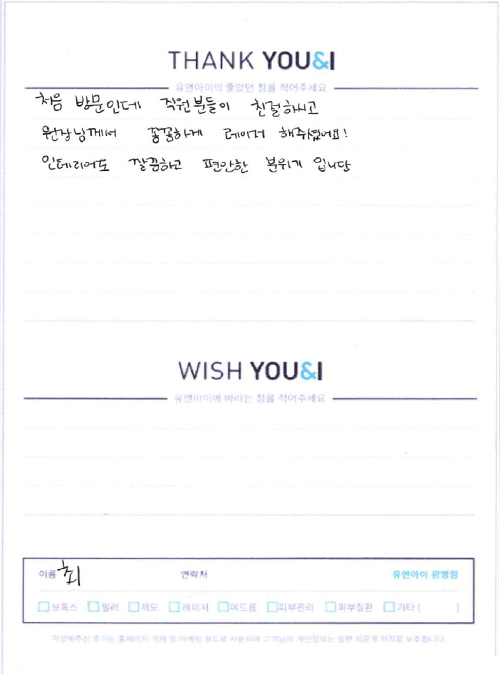 THANK YOU&I
유앤아이의 좋았던 점을 적어주세요
처음 방문인데 직원분들이 친절하시고
원장님께서 꼼꼼하게 레이저 해주셨어요!
인테리어도 깔끔하고 편안한 분위기 입니다
WISH YOU&I
유앤아이에 바라는 점을 적어주세요
이름 최 연락처 유앤아이 광명점
보톡스 필러 제모 레이저 여드름 피부관리 피부질환 기타 ( )
작성해주신 후기는 홈페이지 게재 및 마케팅 용도로 사용되며 고객님의 개인정보는 일부 비공개 처리로 보호됩니다.